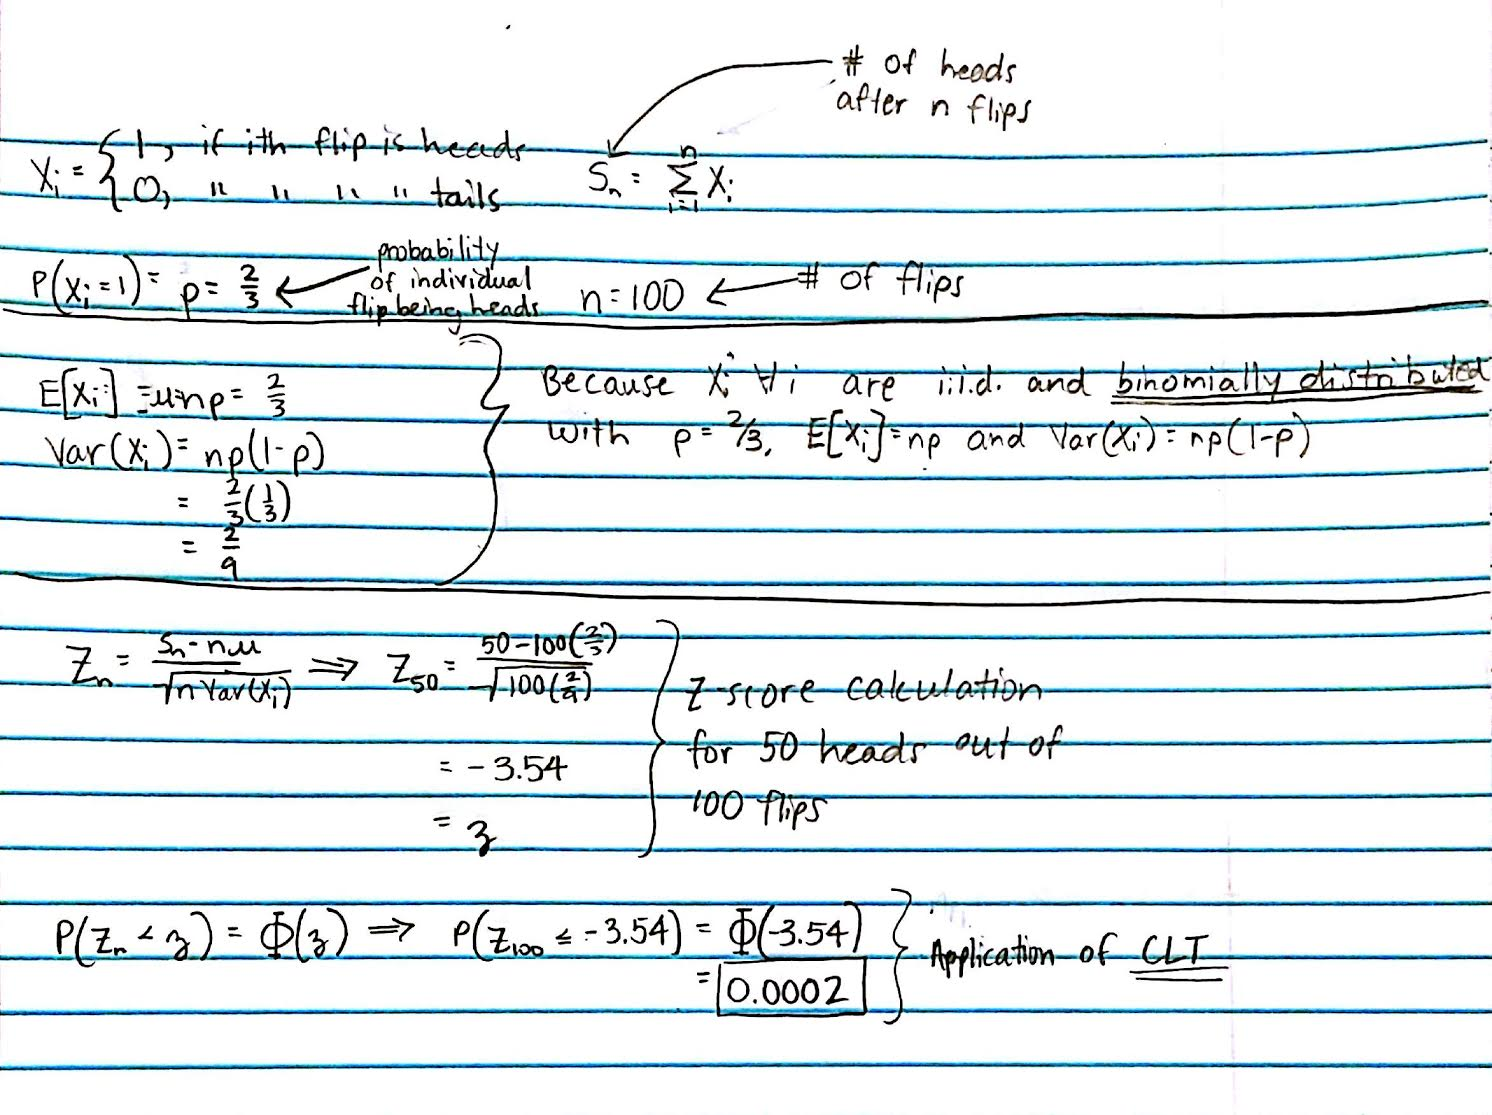 # of heads
after n flips
Xᵢ = { 1, if ith flip is heads
0, " " " " tails
Sₙ = Σᵢ₌₁ⁿ Xᵢ
P(Xᵢ=1) = p = 2/3
probability
of individual
flip being heads
n=100
# of flips
E[Xᵢ] ≡ μ = np = 2/3
Var(Xᵢ) = np(1-p)
= 2/3(1/3)
= 2/9
Because Xᵢ ∀i are i.i.d. and binomially distributed
with p = 2/3, E[Xᵢ]=np and Var(Xᵢ) = np(1-p)
Zₙ = (Sₙ - nμ)/√(n Var(Xᵢ)) ⟹ Z₅₀ = (50-100(2/3))/√(100(2/9))
= -3.54
= z
Z-score calculation
for 50 heads out of
100 flips
P(Zₙ < z) = Φ(z) ⟹ P(Z₁₀₀ ≤ -3.54) = Φ(-3.54)
= 0.0002
Application of CLT